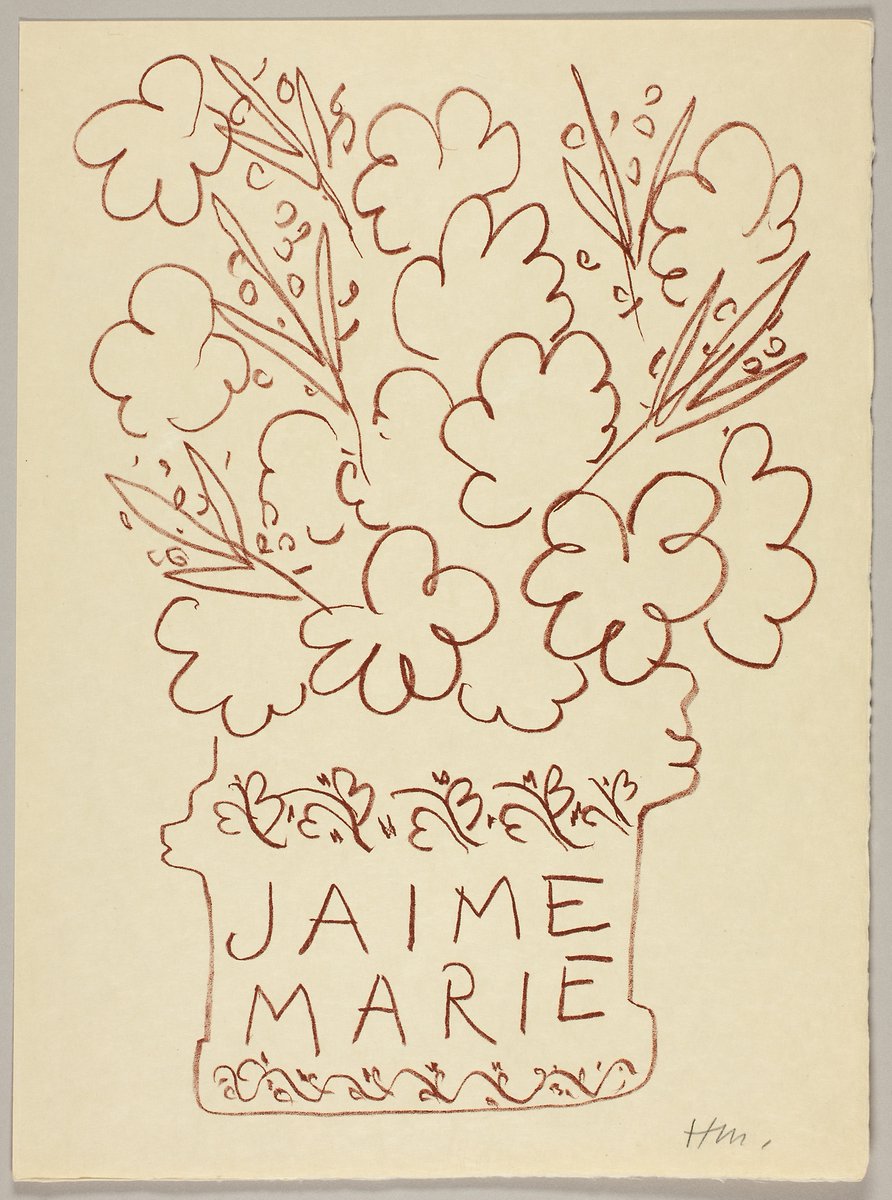 JAIME
MARIE
Hm.